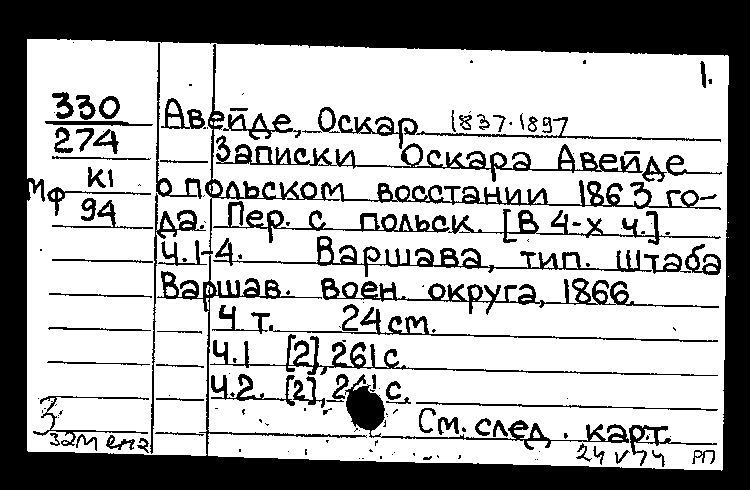 1.
330
274
Мф К1
94
Авейде, Оскар. 1837-1897
Записки Оскара Авейде
о польском восстании 1863 го-
да. Пер. с польск. [В 4-х ч.].
Ч.1-4. Варшава, тип. штаба
Варшав. воен. округа, 1866.
4 т. 24 см.
Ч.1 [2], 261 с.
Ч.2. [2], с.
См. след. карт.
3
24 V 74 РП